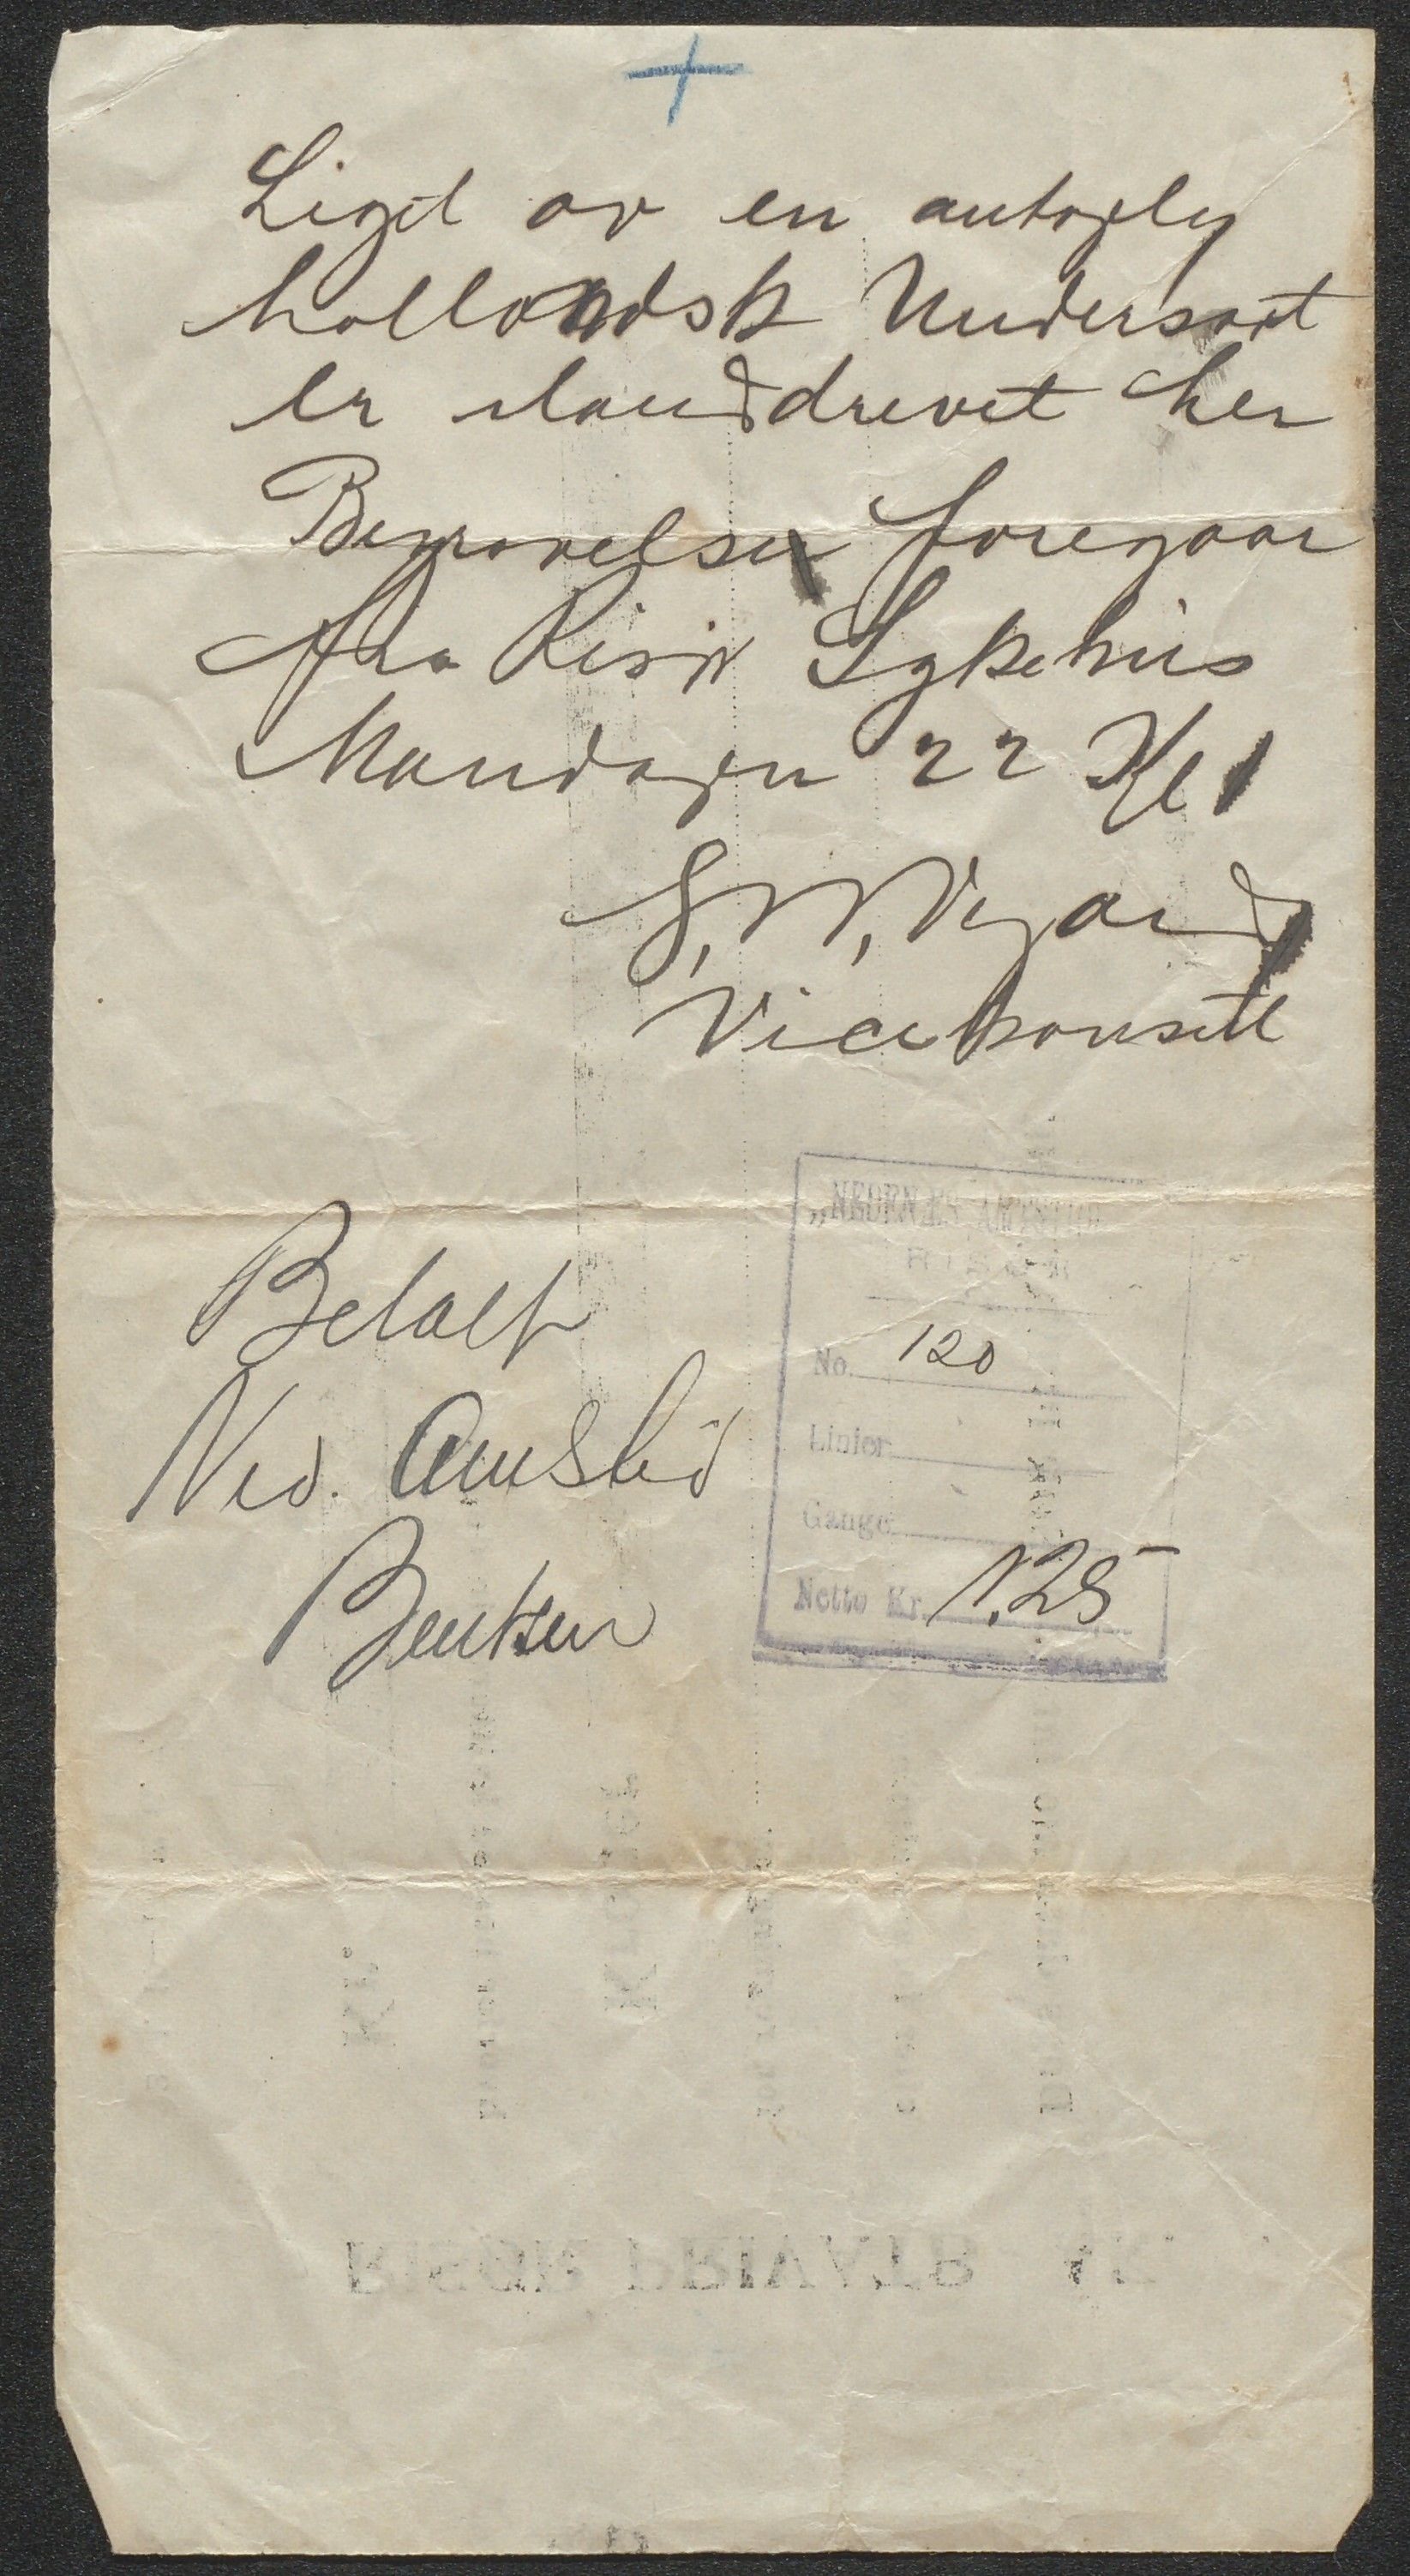 Liget av en antagelig
hollandsk Undersaat
er ilanddrevet her
Begravelsen foregaar
fra Risør Sykehus
Mandagen 22 Kl 1
Vicekonsul
Betalt
Ned. Amstid
Bentsen
„NEDENES AMTSTID
RISØR
No. 120
Linier
Gange
Netto Kr. 1.25
RISØR PRIVATB